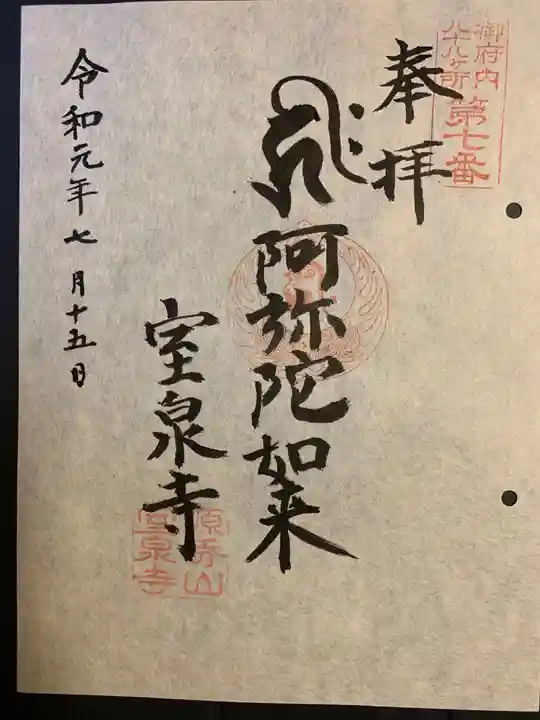 御府内
八十八ヶ所
第七番
奉拝
阿弥陀如来
室泉寺
令和元年七月十五日
室泉寺